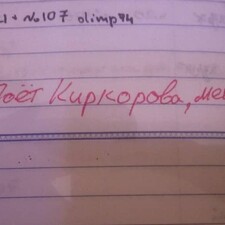 №107 olimp94
Поёт Киркорова, ме